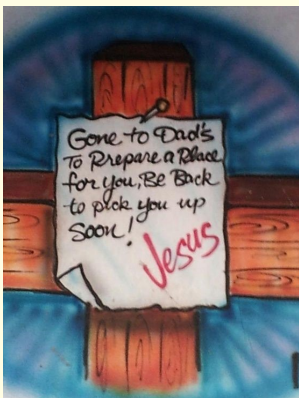 Gone to Dad's
To Prepare a Place
for you, Be Back
to pick you up
Soon!
Jesus